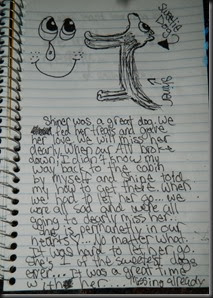 Sweetie
Dog
Shiner
Shiner was a great dog. We
fed her treats and gave
her love. We will miss her
dearly. When our ATV broke
down, I didn't know my
way back to the cabin
by myself and Shiner told
me how to get there. When
we had to let her go, we
were all sad and we all
going to dearly miss her.
She is permanetly in our
hearts... No matter what.
I was hard to let her go.
She's 1 of the sweetest dogs
ever... It was a great time
with her.... missing already